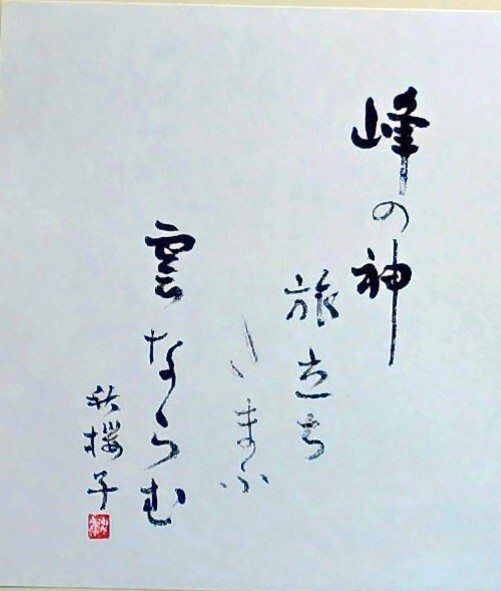 峰の神
旅立ち
たまふ
雲ならむ
秋櫻子